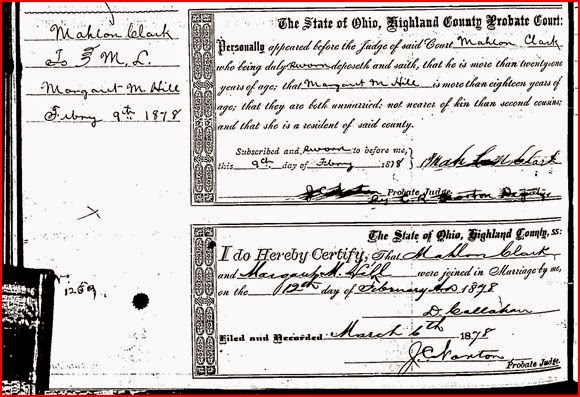 Mahlon Clark
To } M. L.
Margaret M Hill
Febry 9th 1878
1259.
The State of Ohio, Highland County Probate Court:
Personally appeared before the Judge of said Court, Mahlon Clark
who being duly sworn deposeth and saith, that he is more than twenty-one
years of age; that Margaret M Hill is more than eighteen years of
age; that they are both unmarried; not nearer of kin than second cousins;
and that she is a resident of said county.
Subscribed and sworn to before me,
this 9th day of Febry 1878
Mahlon Clark
Probate Judge
By Deputy
The State of Ohio, Highland County, ss:
I do Hereby Certify, That Mahlon Clark
and Margaret M. Hill were joined in Marriage by me,
on the 12th day of February A D 1878
D. Callahan
Filed and Recorded March 6th 1878
Probate Judge.